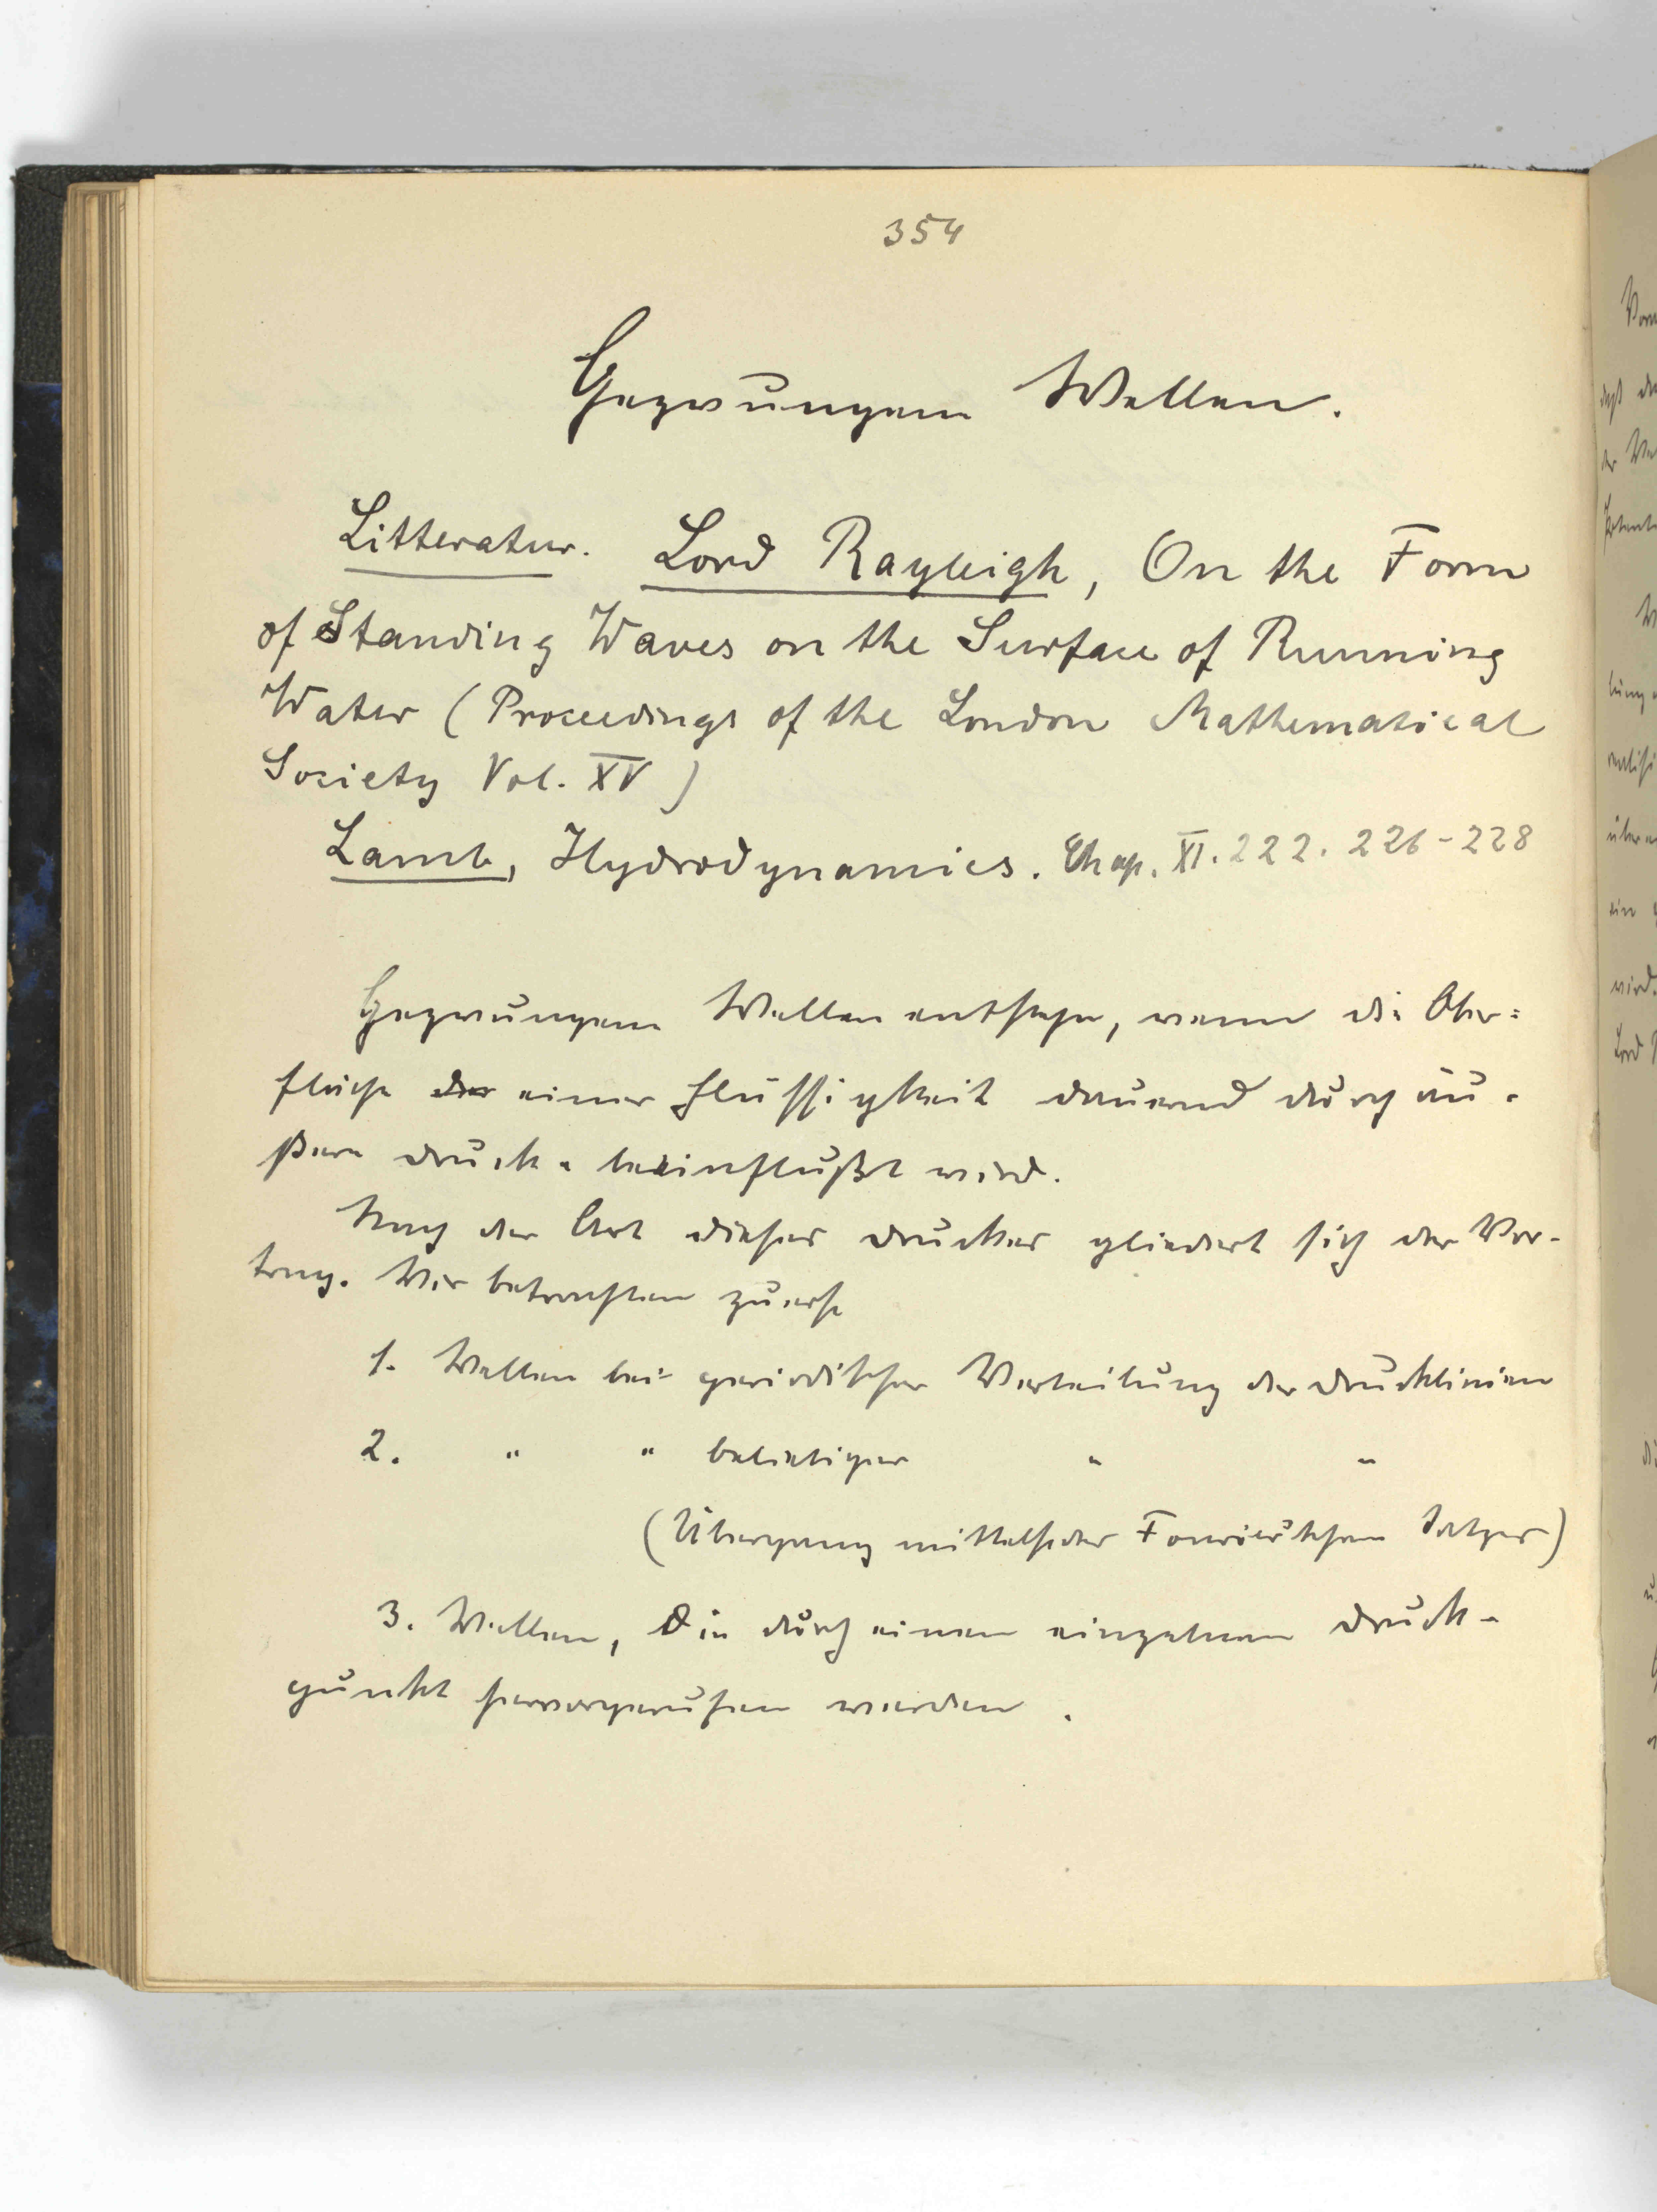 354
Gezwungene Wellen.
Litteratur. Lord Rayleigh, On the Form
of Standing Waves on the Surface of Running
Water (Proceedings of the London Mathematical
Society Vol. XV)
Lamb, Hydrodynamics. Chap. XI. 222. 226-228
Gezwungene Wellen entstehen, wenn die Ober=
fläche einer Flüssigkeit dauernd durch äu-
ßere Drucke beeinflußt wird.
Nach der Art dieser Drucke gliedert sich der Vor-
trag. Wir betrachten zuerst
1. Wellen bei periodischer Verteilung der Drucklinien
2. " " beliebiger " "
(Übergang mittelst des Fourier'schen Satzes)
3. Wellen, die durch einen einzelnen Druck-
punkt hervorgerufen werden.